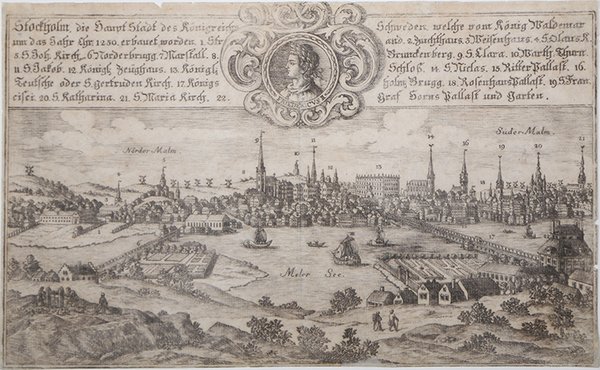 Stockholm, die Haupt Stadt des Königreichs Schweden, welche vom König Waldemar
um das Jahr Chr 1250. erbauet worden. 1. Str 2. Zuchthaus. 3. Weisenhaus. 4. S. Olaus K.
5. S. Joh. Kirch. 6. Norderbrugg. 7. Marstall. 8. Brunckenberg. 9. S. Clara. 10. Warth. Thurn.
11. S. Jakob. 12. Königl. Zeughaus. 13. Königli. Schloß. 14. S. Niclas. 15. Ritter Pallast. 16.
Teutsche oder S. gertruden Kirch. 17. Königs holm Brugg. 18. Rosenhans Pallast. 19. S. Fran
cisci. 20. S. Katharina. 21. S. Maria Kirch. 22. Graf Horns Pallast und Garten.
Norder Malm
Suder Malm.
Meler See.